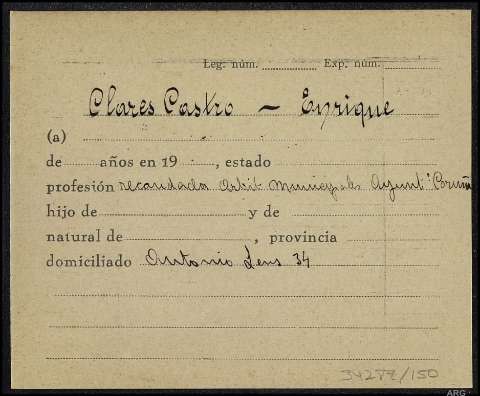 Leg: núm. Exp. núm.
Clares Castro - Enrique
(a)
de años en 19 , estado
profesión recaudador Arbit. Municipales Ayunt. Coruña
hijo de y de
natural de , provincia
domiciliado Antonio Lens 34
34277/150
ARG.